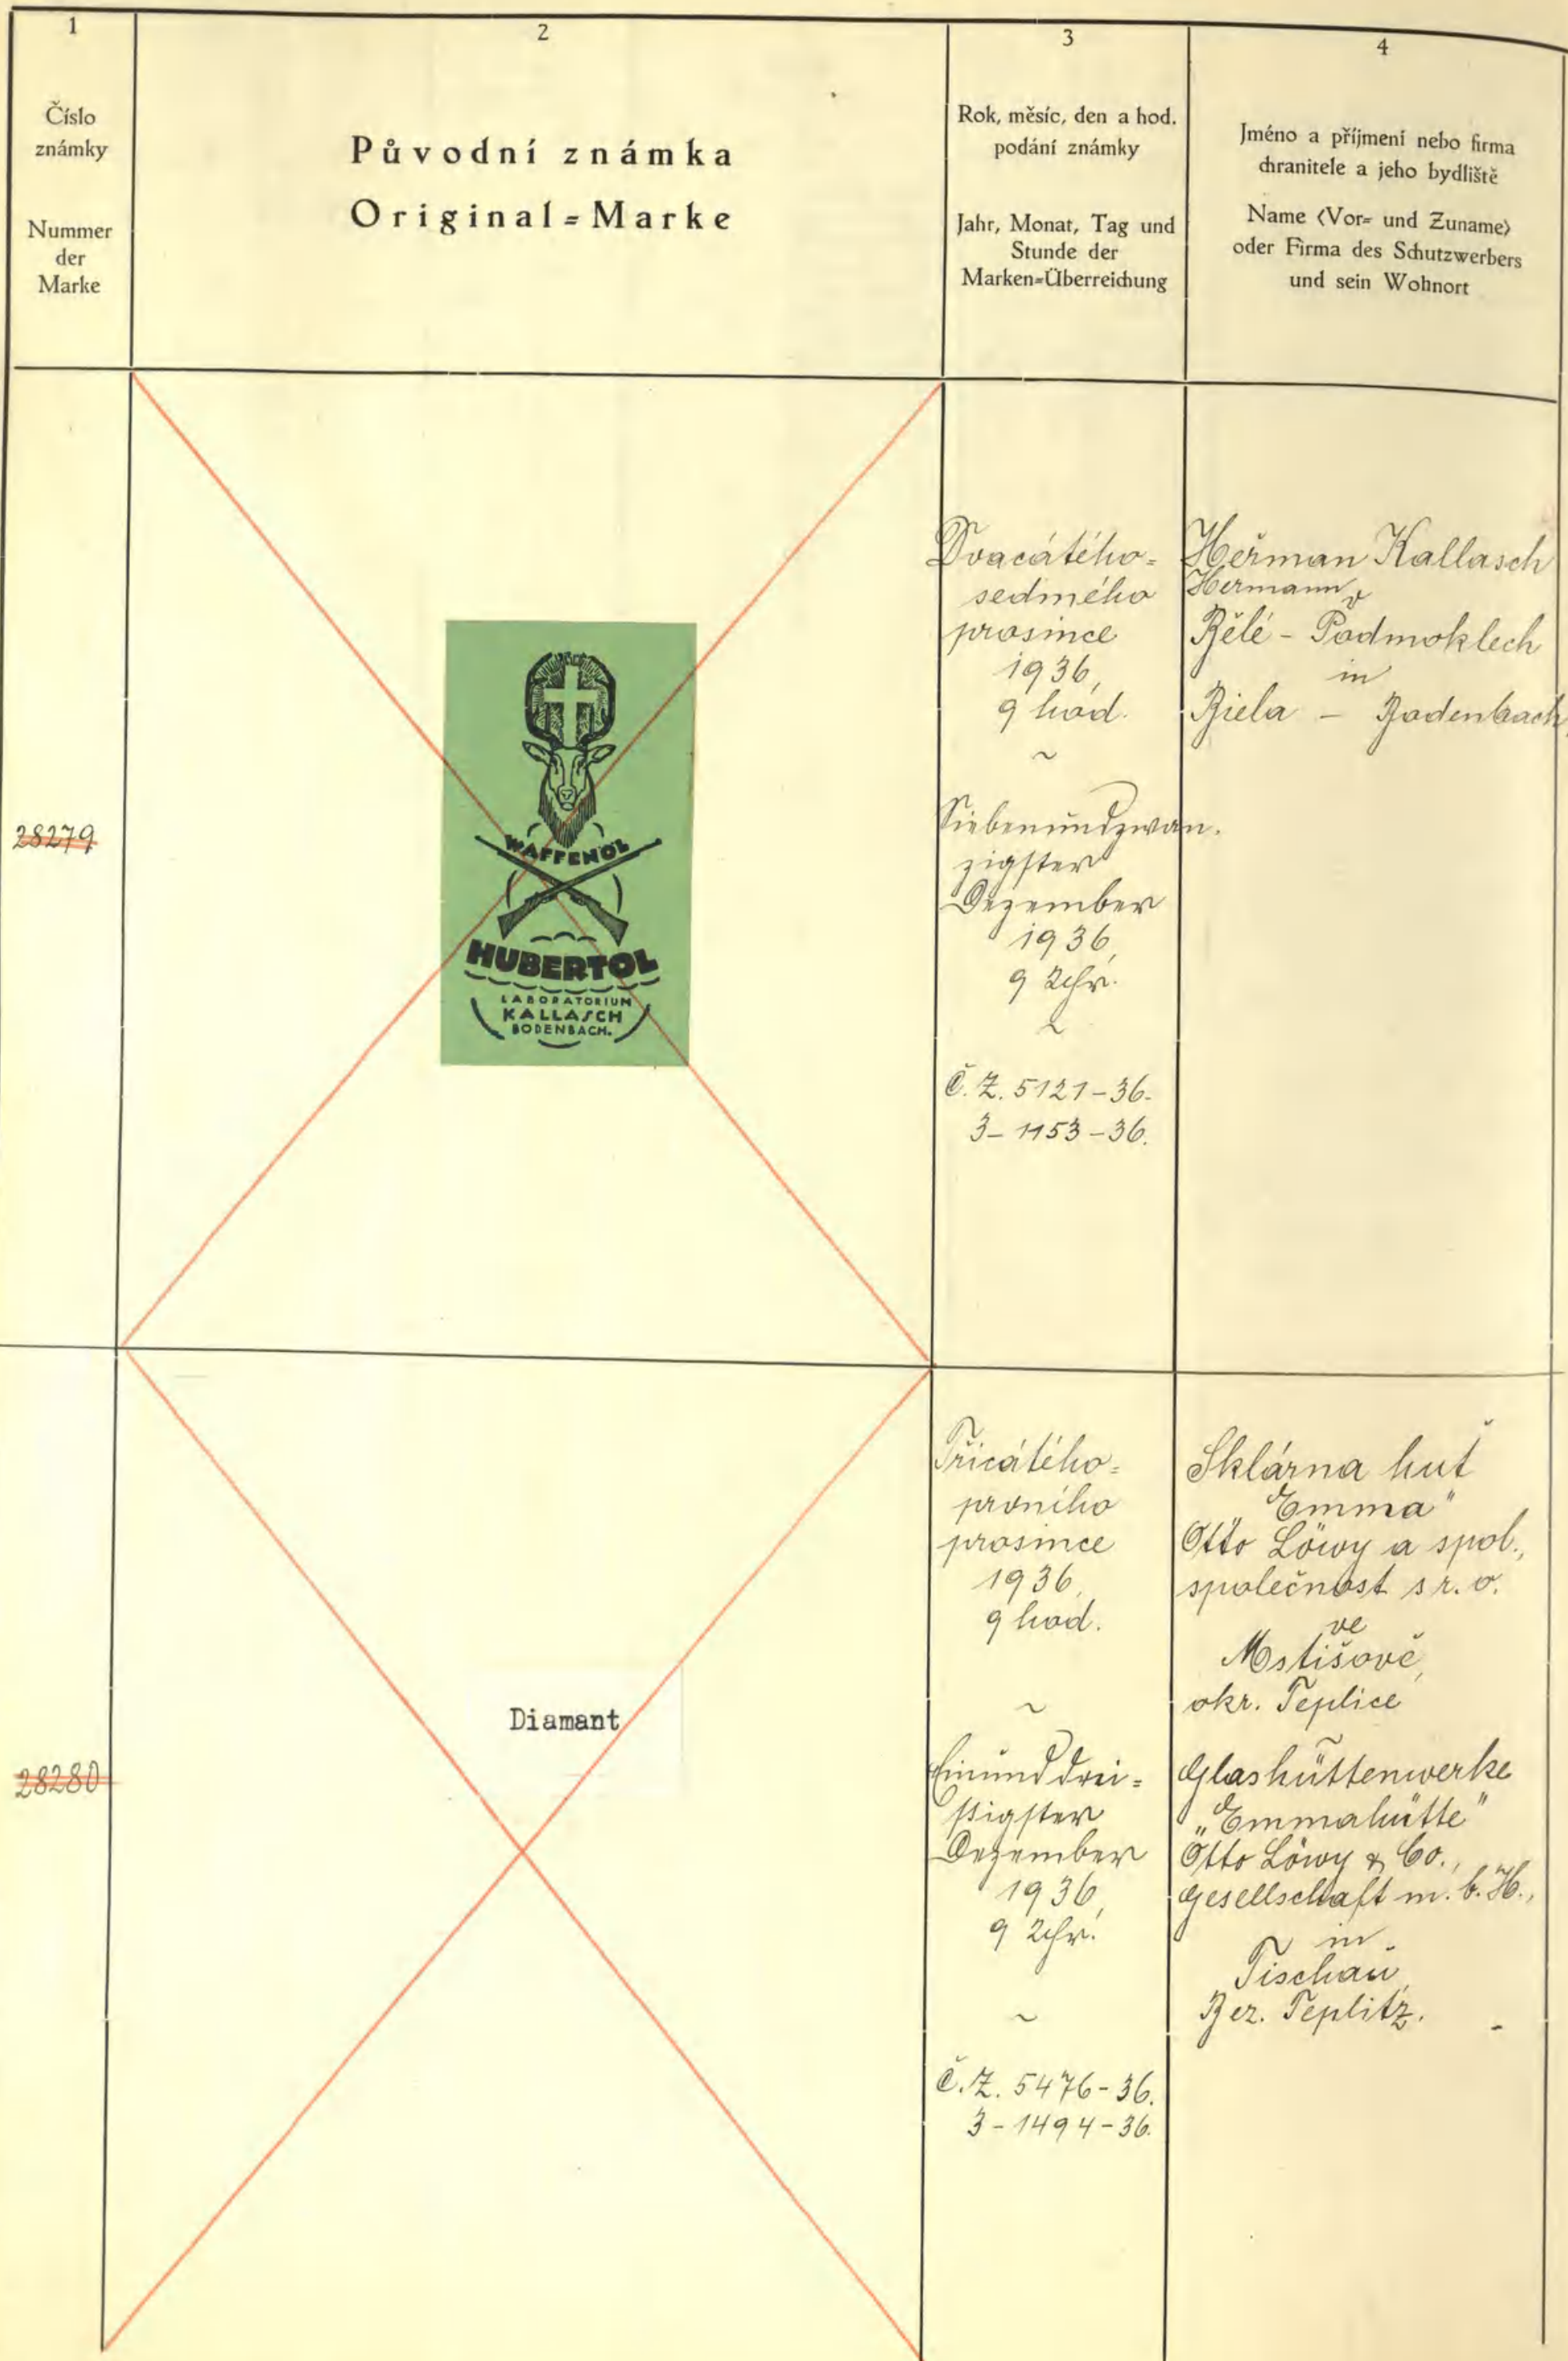 1
Číslo
známky
Nummer
der
Marke
2
Původní známka
Original=Marke
3
Rok, měsíc, den a hod.
podání známky
Jahr, Monat, Tag und
Stunde der
Marken=Überreichung
4
Jméno a příjmení nebo firma
chranitele a jeho bydliště
Name (Vor= und Zuname)
oder Firma des Schutzwerbers
und sein Wohnort
28279
WAFFENÖL
HUBERTOL
LABORATORIUM
KALLASCH
BODENBACH.
Dvacátého=
sedmého
prosince
1936,
9 hod.
~
Siebenundzwan-
zigster
Dezember
1936,
9 Uhr.
~
Č.Z. 5121-36.
3-1153-36.
Heřman Kallasch
Hermann
v
Bělé - Podmoklech
in
Biela - Bodenbach
28280
Diamant
Třicátého=
prvního
prosince
1936,
9 hod.
~
Einunddrei=
ßigster
Dezember
1936,
9 Uhr.
~
Č.Z. 5476-36.
3-1494-36.
Sklárna huť
"Emma"
Otto Löwy a spol.,
společnost s r. o.
ve
Mstišově,
okr. Teplice
~
Glashüttenwerke
„Emmahütte"
Otto Löwy & Co.,
Gesellschaft m. b. H.,
in
Tischau,
Bez. Teplitz. -